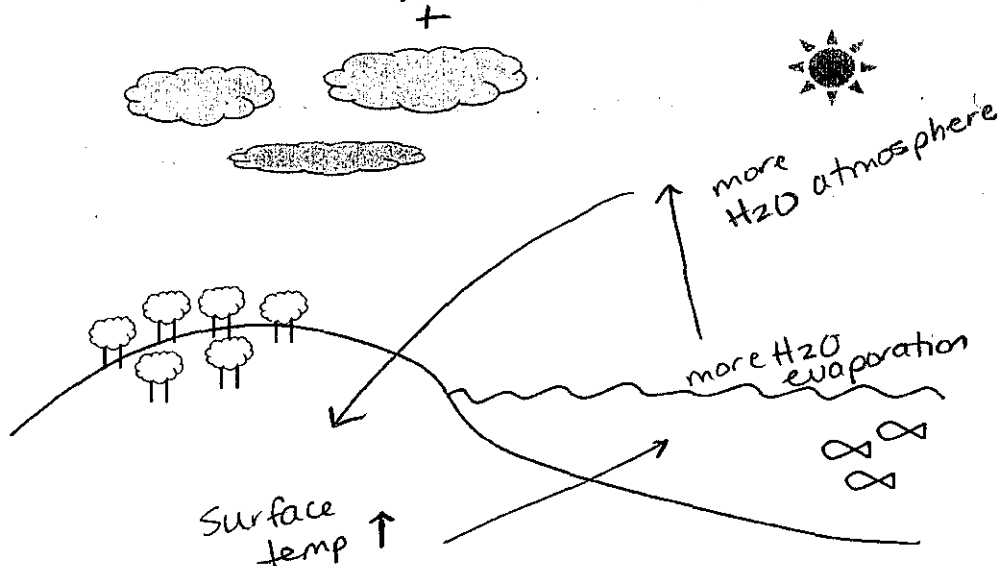 +
more
H2O atmosphere
more H2O
evaporation
Surface
temp ↑